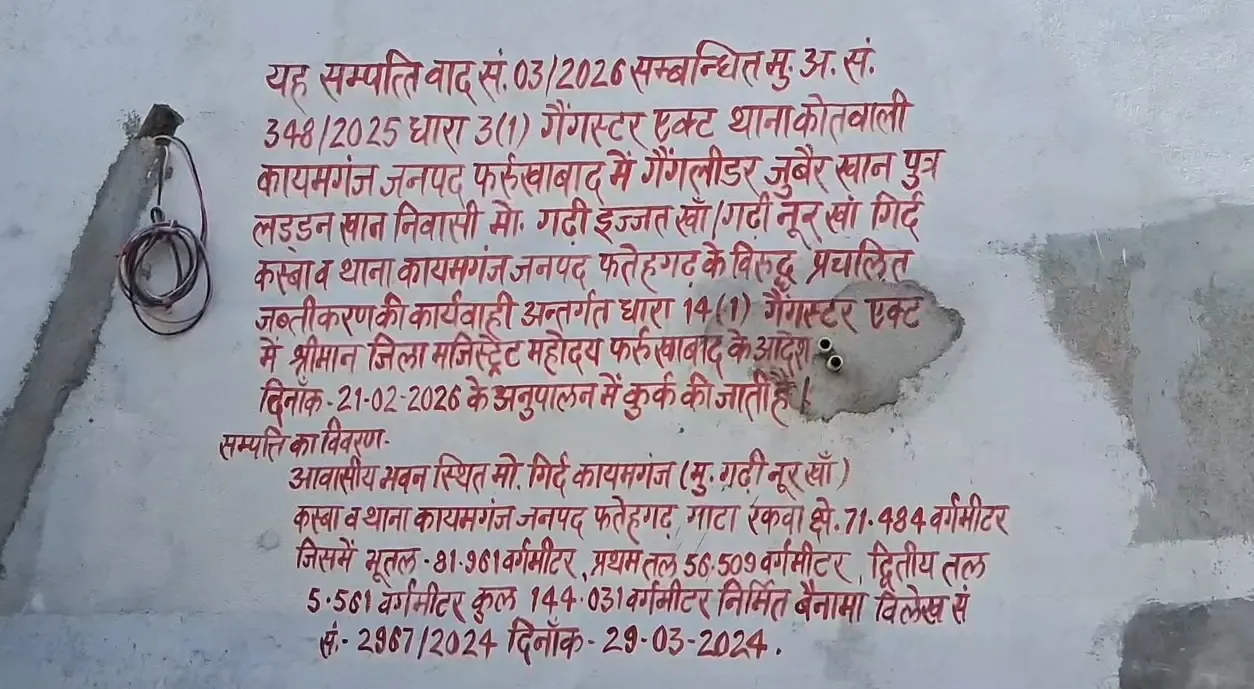 यह सम्पत्ति वाद सं. 03/2026 सम्बन्धित मु. अ. सं.
348/2025 धारा 3(1) गैंगस्टर एक्ट थाना कोतवाली
कायमगंज जनपद फर्रुखाबाद में गैंगलीडर जुबैर खान पुत्र
लड्डन खान निवासी मो. गढ़ी इज्जत खाँ/गढ़ी नूर खां गिर्द
कस्बा व थाना कायमगंज जनपद फतेहगढ़ के विरुद्ध प्रचलित
जब्तीकरण की कार्यवाही अन्तर्गत धारा 14(1) गैंगस्टर एक्ट
में श्रीमान जिला मजिस्ट्रेट महोदय फर्रुखाबाद के आदेश
दिनाँक-21-02-2026 के अनुपालन में कुर्क की जाती है।
सम्पत्ति का विवरण-
आवासीय भवन स्थित मो. गिर्द कायमगंज (मु. गढ़ी नूर खाँ)
कस्बा व थाना कायमगंज जनपद फतेहगढ़ गाटा रकवा क्षे. 71.484 वर्गमीटर
जिसमें भूतल-81.961 वर्गमीटर, प्रथम तल 56.509 वर्गमीटर, द्वितीय तल
5.561 वर्गमीटर कुल 144.031 वर्गमीटर निर्मित बैनामा विलेख सं
सं.-2967/2024 दिनाँक-29-03-2024.